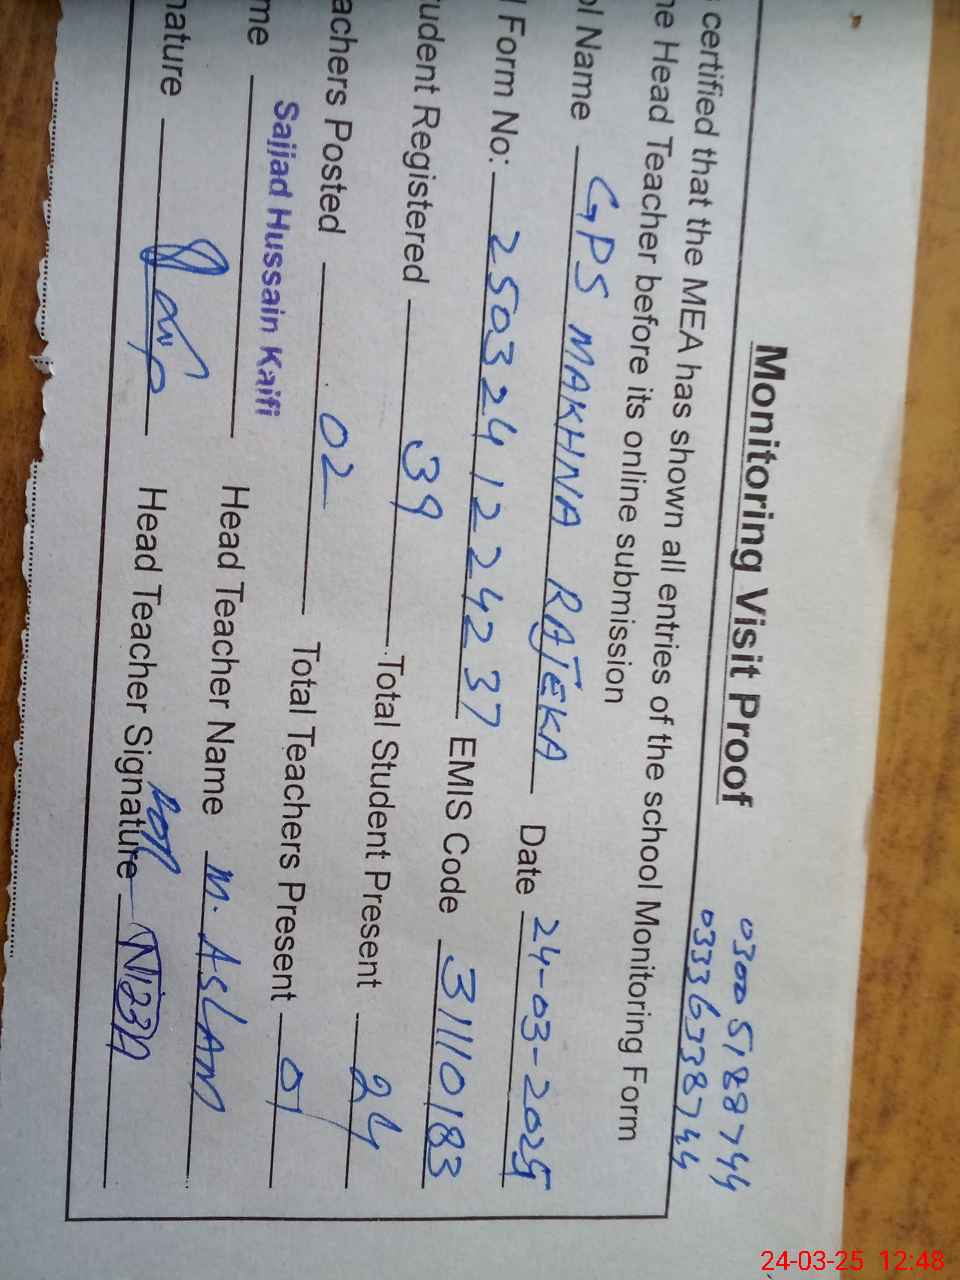 Monitoring Visit Proof
0300 5188744
0333 6338744
certified that the MEA has shown all entries of the school Monitoring Form
he Head Teacher before its online submission
ol Name GPS MAKHNA RAJEKA Date 24-03-2025
l Form No: 2503241224237 EMIS Code 31110183
tudent Registered 39 Total Student Present 24
achers Posted 02 Total Teachers Present 01
me Sajjad Hussain Kaifi Head Teacher Name M. ASLAM
nature Head Teacher Signature
24-03-25 12:48